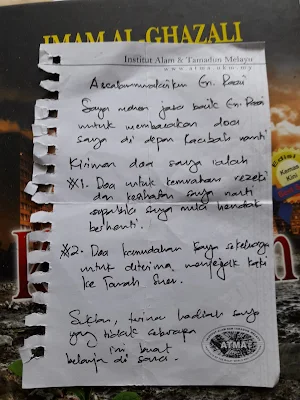 IMAM AL-GHAZALI
Institut Alam & Tamadun Melayu
www.atma.ukm.my
Assalamualaikum En. Rosli
Saya mohon jasa baik En. Rosli
untuk membacakan doa
saya di depan Kaabah nanti
Kiriman doa saya ialah
※1. Doa untuk kemurahan rezeki
dan kesihatan saya nanti
apabila saya mula hendak
berhenti.
※2. Doa kemudahan saya sekeluarga
untuk diterima menjejak kaki
ke Tanah Suci.
Sekian, terima hadiah saya
yang tidak seberapa
ini buat
belanja di sana.
ATMA
Edisi
Kemas
Kini